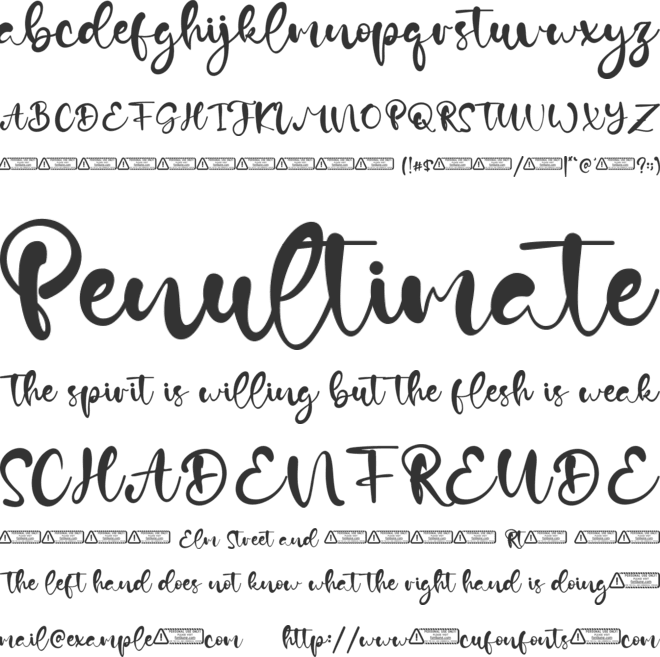 abcdefghijklmnopqrstuvwxyz
ABCDEFGHIJKLMNOPQRSTUVWXYZ
(!#$ / |"`@' ?:;)
Penultimate
The spirit is willing but the flesh is weak
SCHADENFREUDE
Elm Street and Rt
The left hand does not know what the right hand is doing
mail@example com http://www cufonfonts com